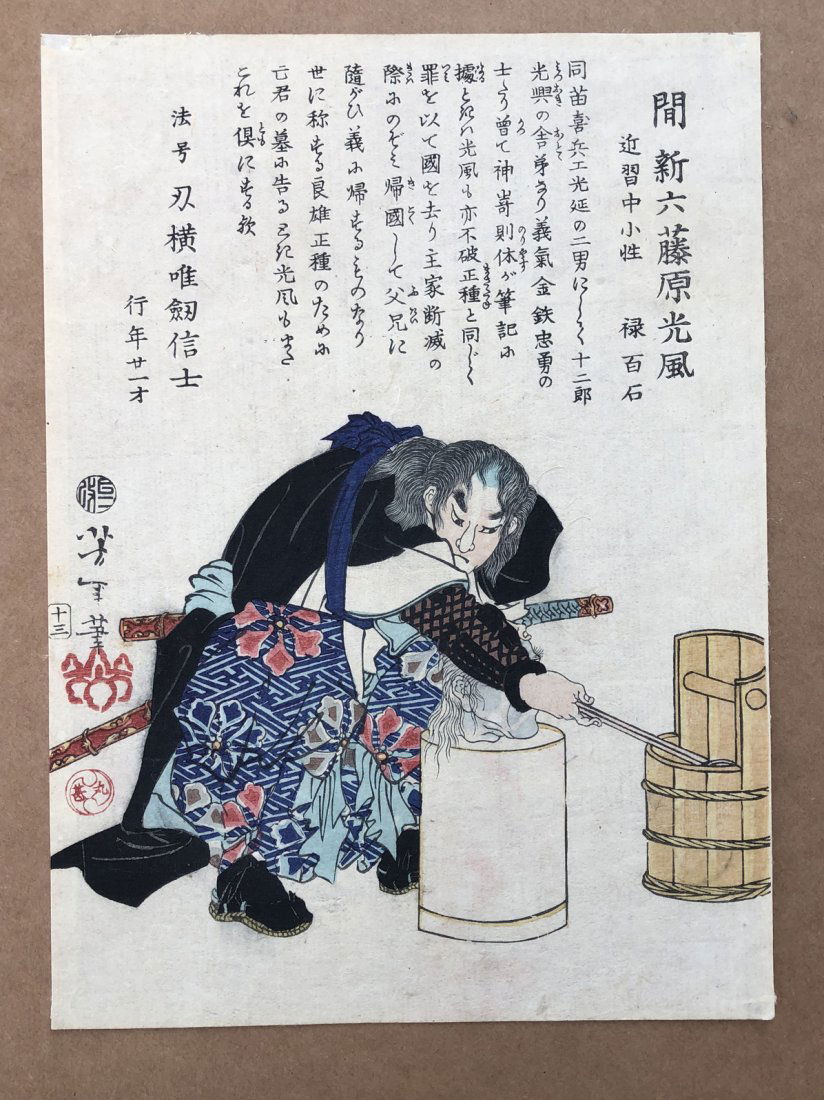 間 新六藤原光風
近習中小性 禄百石
同苗喜兵エ光延の二男にして十二郎
光興の舎弟なり義氣金鉄忠勇の
士たり曽て神嵜則体が筆記に
據ときハ光風も亦不破正種と同じく
罪を以て國を去り主家断滅の
際にのぞミ帰國して父兄に
隨がひ義に帰するものなり
世に称する良雄正種のために
亡君の墓に告るとき光風もまた
これを倶にする歟
法号 刃横唯劔信士
行年廿一才
芳年筆
十三
丸甚